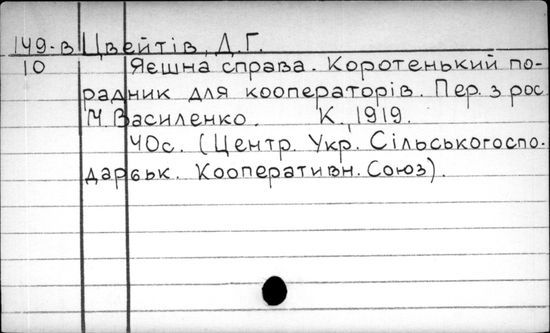 149-в Цвейтів, Д.Г.
10 Яєшна справа. Коротенький по-
радник для кооператорів. Пер. з рос
М. Василенко. К, 1919.
40с. (Центр. Укр. Сільськогоспо-
дарськ. Кооперативн. Союз).